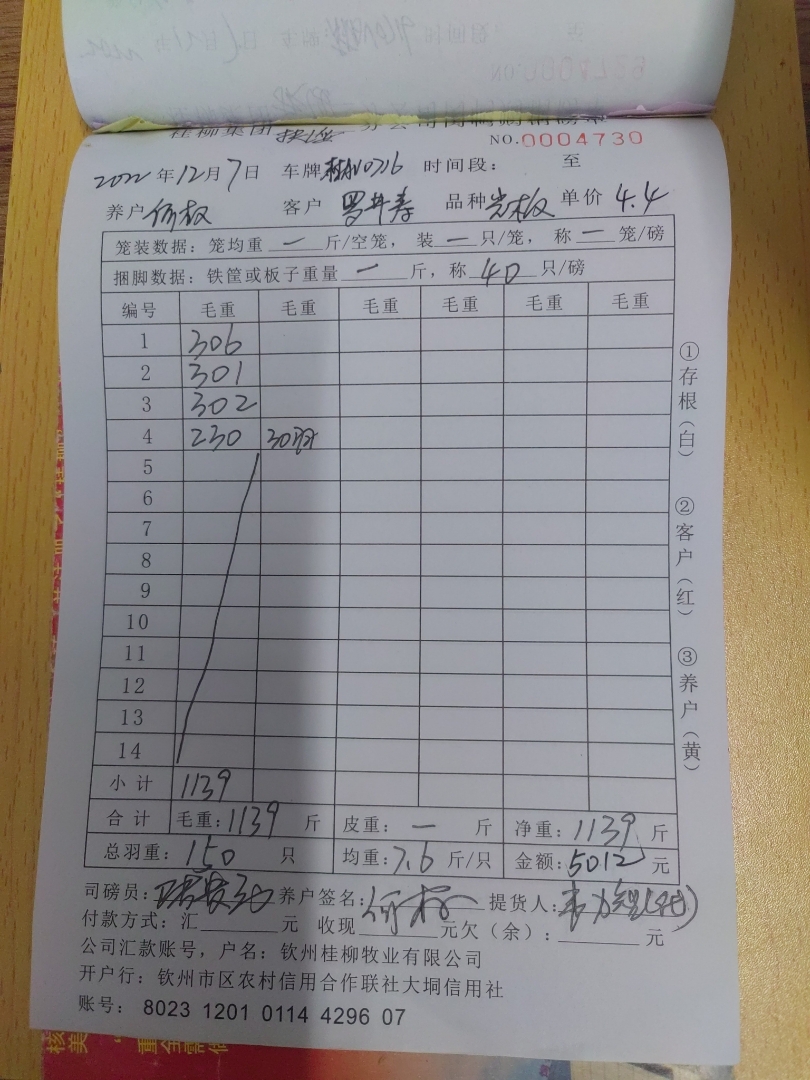 桂柳集团
NO.0004730
2022年12月7日 车牌 0716 时间段： 至
养户 客户 罗 寿 品种 光板 单价 4.4
笼装数据：笼均重 一 斤/空笼，装 一 只/笼，称 一 笼/磅
捆脚数据：铁筐或板子重量 一 斤，称 40 只/磅
编号 毛重 毛重 毛重 毛重 毛重 毛重
1 306
2 301
3 302
4 230 30羽
5
6
7
8
9
10
11
12
13
14
小计 1139
合计 毛重：1139 斤 皮重：一 斤 净重：1139 斤
总羽重：150 只 均重：7.6 斤/只 金额：5012 元
司磅员： 养户签名： 提货人：
付款方式：汇 元 收现 元欠（余）： 元
公司汇款账号，户名：钦州桂柳牧业有限公司
开户行：钦州市区农村信用合作联社大垌信用社
账号： 8023 1201 0114 4296 07
①存根（白）
②客户（红）
③养户（黄）